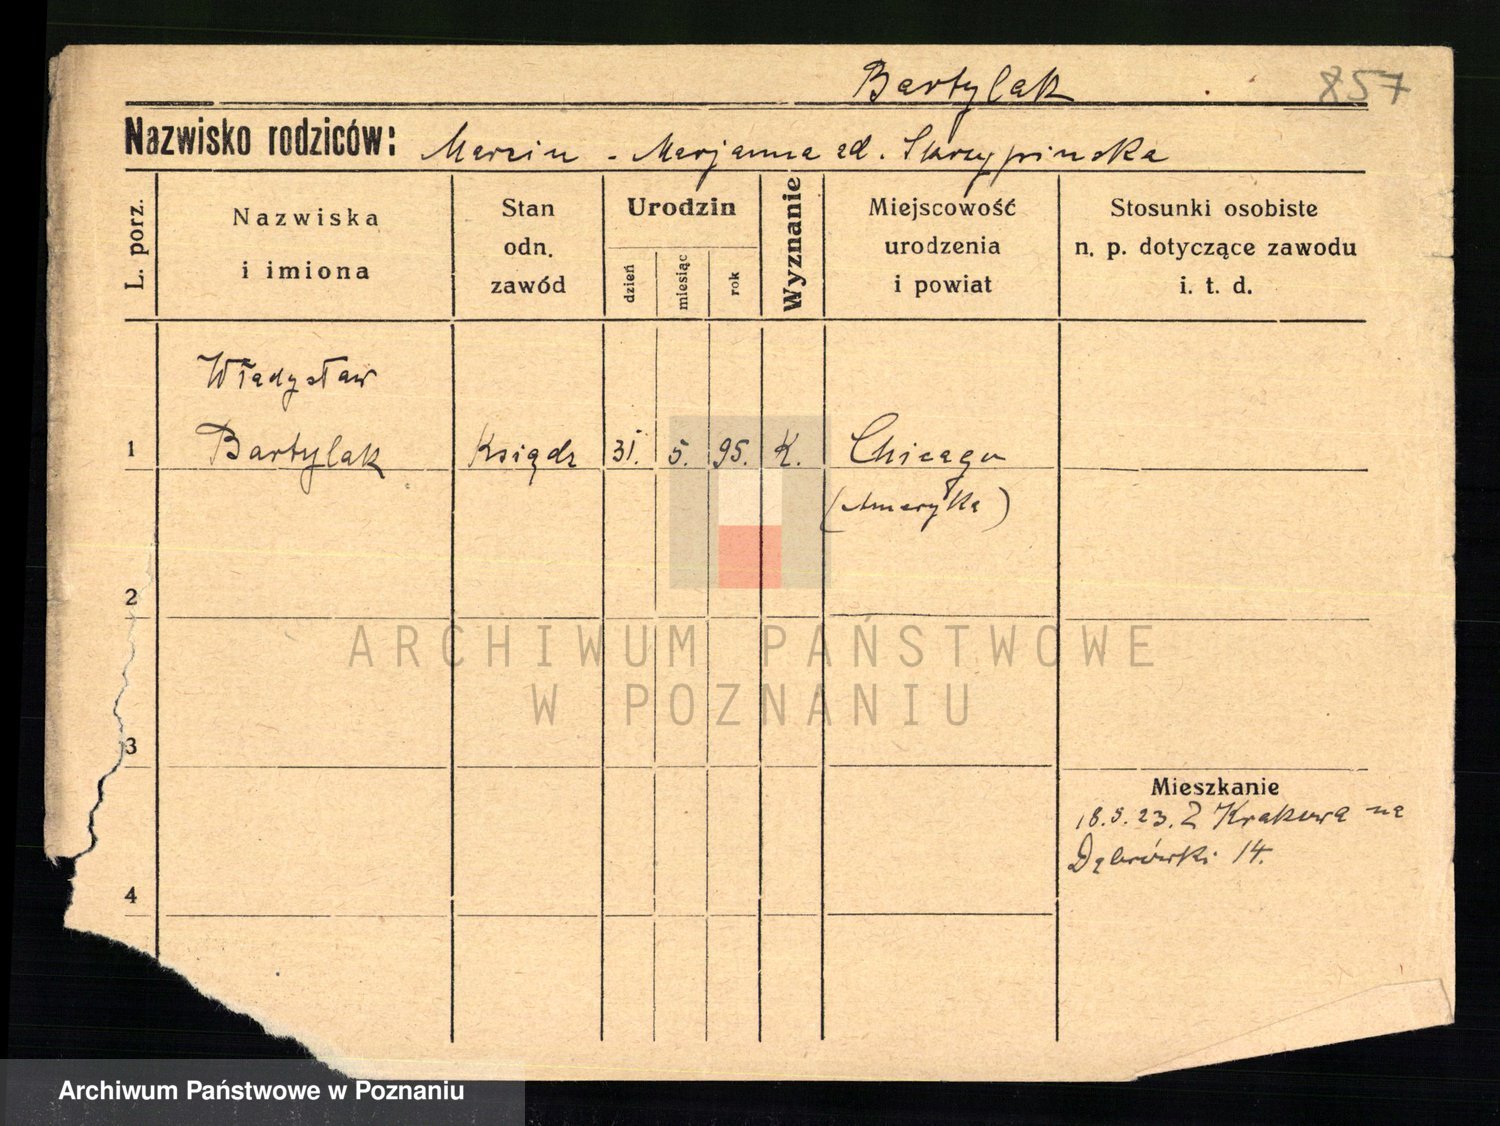 Bartylak 857
Nazwisko rodziców: Marcin - Marjanna zd. Skrzypinska
L. porz.
Nazwiska
i imiona
Stan
odn.
zawód
Urodzin
dzień
miesiąc
rok
Wyznanie
Miejscowość
urodzenia
i powiat
Stosunki osobiste
n. p. dotyczące zawodu
i. t. d.
Władysław
1 Bartylak Ksiądz 31. 5. 95. K. Chicago
(Ameryka)
2
ARCHIWUM PAŃSTWOWE
W POZNANIU
3
Mieszkanie
18.5.23. Z Krakowa na
Dąbrówki 14.
4
Archiwum Państwowe w Poznaniu